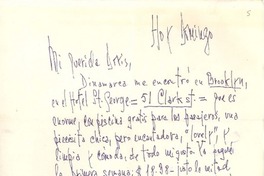 5
Hoy Domingo
Mi querida Doris,
Dinamarca me encontró en Brooklyn,
en el Hotel St. George = 51 Clark st. = que es
enorme, con piscina gratis para los pasajeros, una
piececita chica, pero encantadora, "lovely" y
limpia y cómoda, de todo mi gusto. Ya pagué
la primera semana: $ 18.98 - justo la mitad